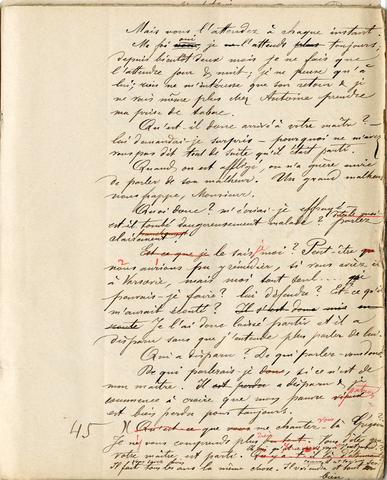 Mais vous l'attendez à chaque instant.
Ma foi oui, je l'attends plus toujours,
depuis bientôt deux mois je ne fais que
l'attendre jour & nuit; je ne pense qu'à
lui; rien ne m'intéresse que son retour & je
ne vais même plus chez Antoine prendre
ma prise de tabac.
Qu'est-il donc arrivé à votre maître? —
lui demandai-je surpris — pourquoi ne m'avez
vous pas dit tout de suite qu'il était parti.
Quand on est affligé, on n'a guère envie
de parler de son malheur. Un grand malheur
nous frappe, Monsieur.
Quoi donc? m'écriai-je
est-il tombé dangereusement malade? Parlez
clairement!
Est-ce que je le sais moi? Peut-être que
nous aurions pu y remédier, si vous aviez été
à Varsovie, mais moi tout seul: — que
pouvais-je faire? lui défendre? Est-ce qu'il
m'aurait écouté?
je l'ai donc laissé partir et il a
disparu sans que j'entende plus parler de lui.
Qui a disparu? De qui parlez-vous donc
De qui parlerais-je donc, si ce n'est de
mon maître. Il est perdu a disparu & je
commence à croire que mon pauvre
est bien perdu pour toujours.
45 Qu'est-ce que vous me chantez-là Grégoire
Je ne vous comprends plus Vous dites que
votre maître, est parti.
Il fait tous les ans la même chose. Il reviendra et tout sera
bien.